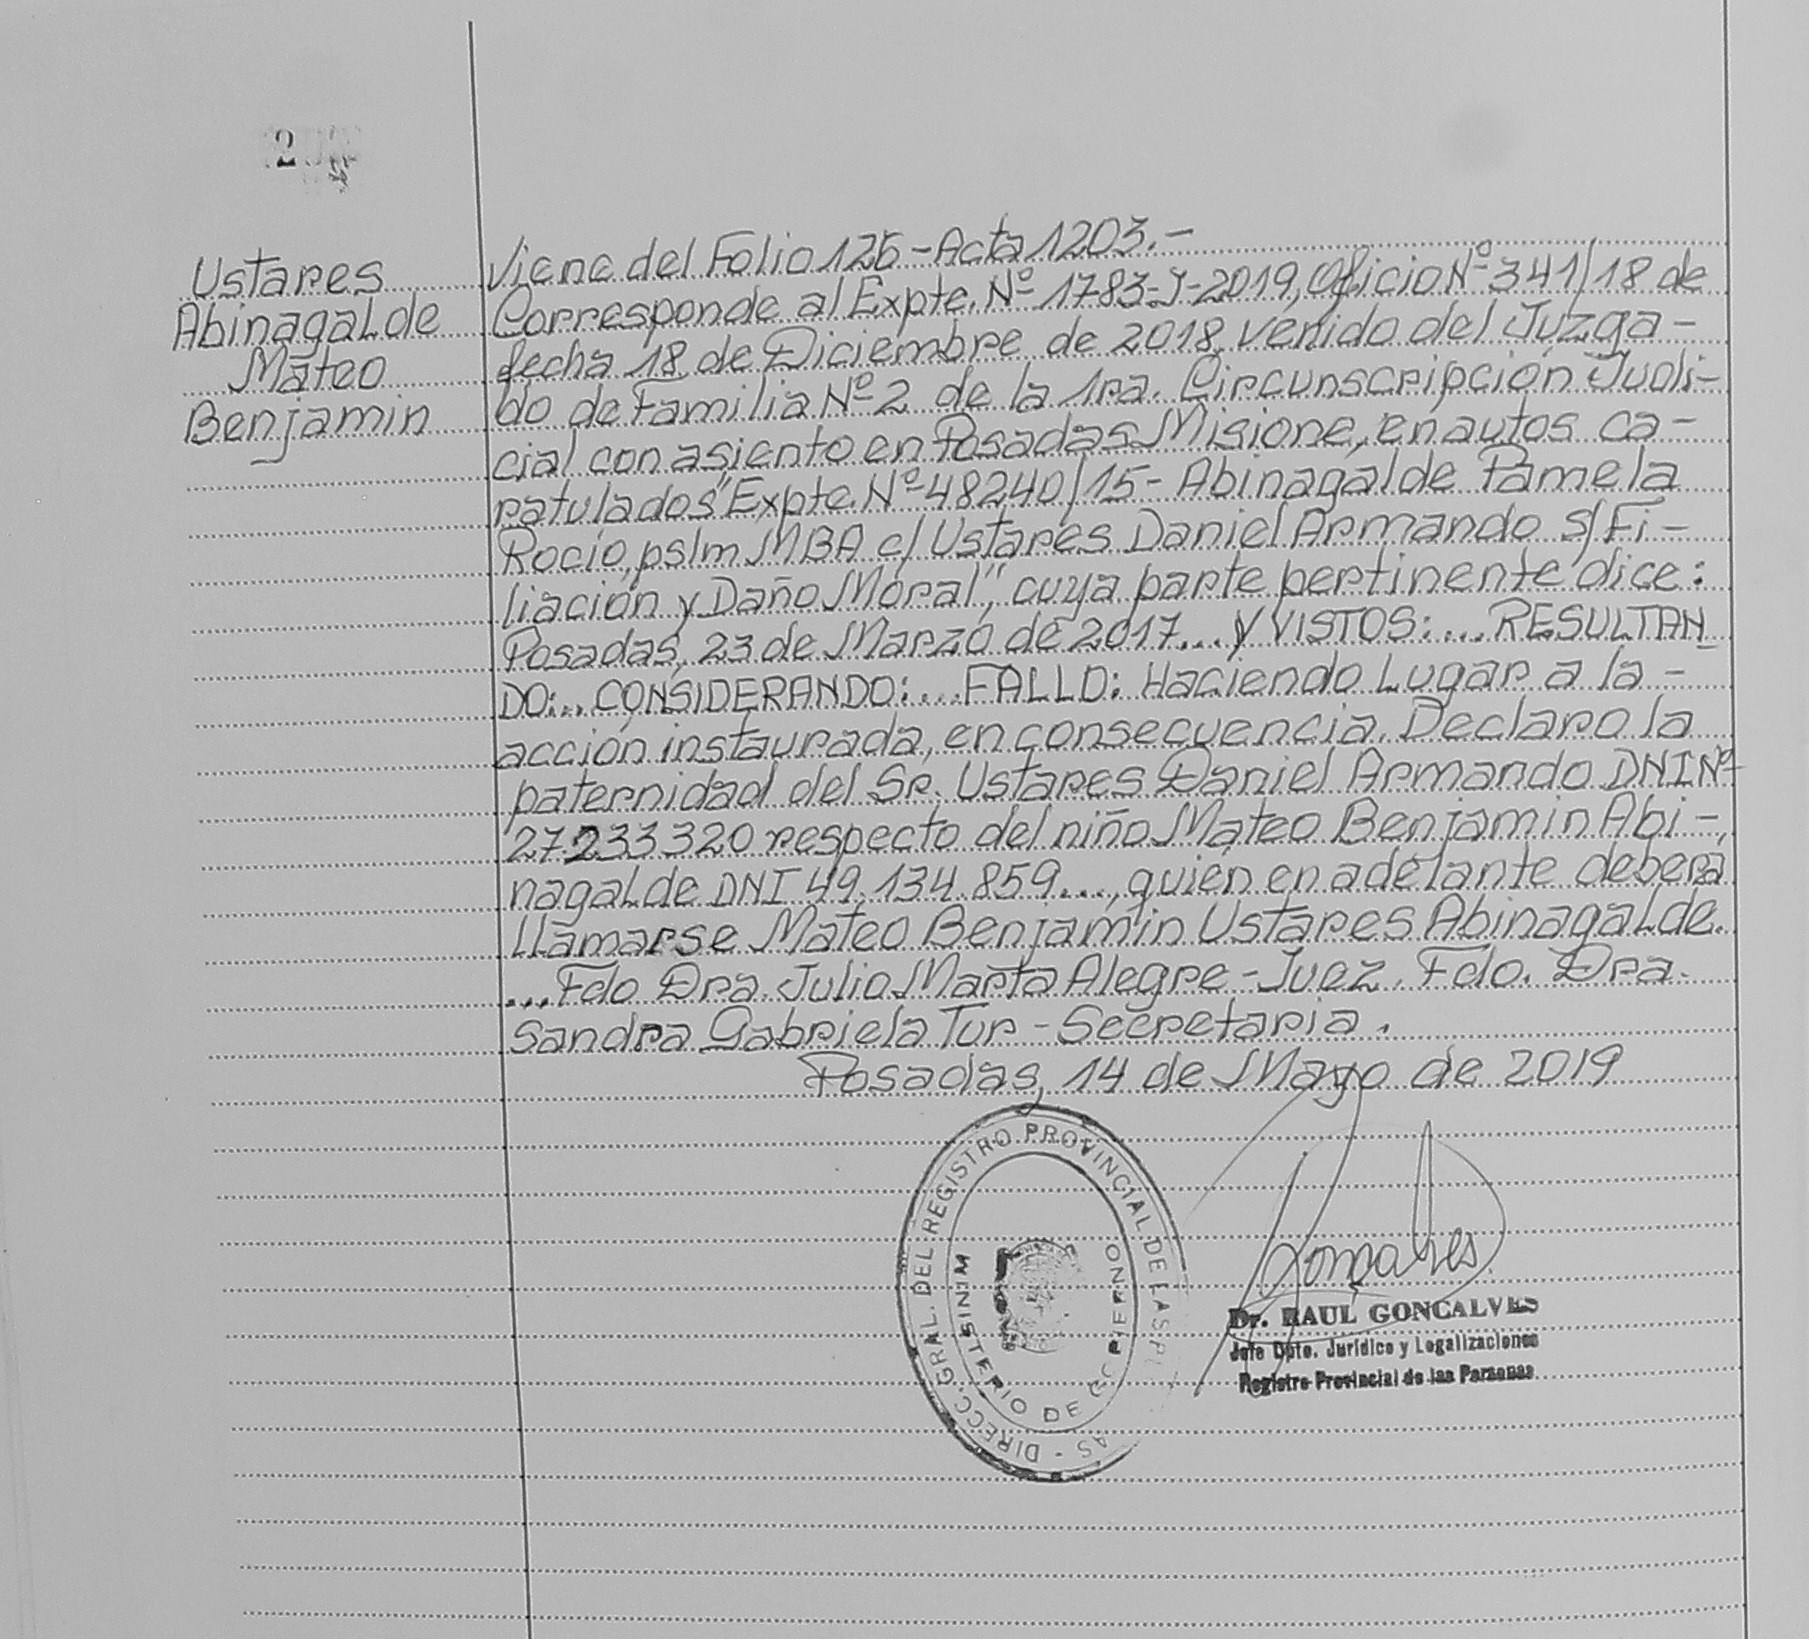 2
Ustares
Abinagalde
Mateo
Benjamin
Viene del Folio 126 - Acta 1203.-
Corresponde al Expte. Nº 1783-J-2019, Oficio Nº 341/18 de
fecha 18 de Diciembre de 2018, venido del Juzga-
do de Familia Nº 2 de la 1ra. Circunscripción Judi-
cial con asiento en Posadas Misione, en autos ca-
ratulados "Expte. Nº 48240/15 - Abinagalde Pamela
Rocío, pslm MBA c/ Ustares Daniel Armando s/ Fi-
liación y Daño Moral", cuya parte pertinente dice:
Posadas, 23 de Marzo de 2017... Y VISTOS:... RESULTAN
DO:... CONSIDERANDO:... FALLO: Haciendo Lugar a la -
acción instaurada, en consecuencia. Declaro la
paternidad del Sr. Ustares Daniel Armando DNI Nº
27233320 respecto del niño Mateo Benjamin Abi-
nagalde DNI 49.134.859..., quién en adelante deberá
llamarse Mateo Benjamin Ustares Abinagalde.
... Fdo Dra. Julio Marta Alegre - Juez. Fdo. Dra.
Sandra Gabriela Tur - Secretaria.
Posadas, 14 de Mayo de 2019
DIRECC. GRAL. DEL REGISTRO PROVINCIAL DE LAS P AS -
MINISTERIO DE GOBIERNO
Goncalves
Dr. RAUL GONCALVES
Jefe Dpto. Jurídico y Legalizaciones
Registro Provincial de las Personas